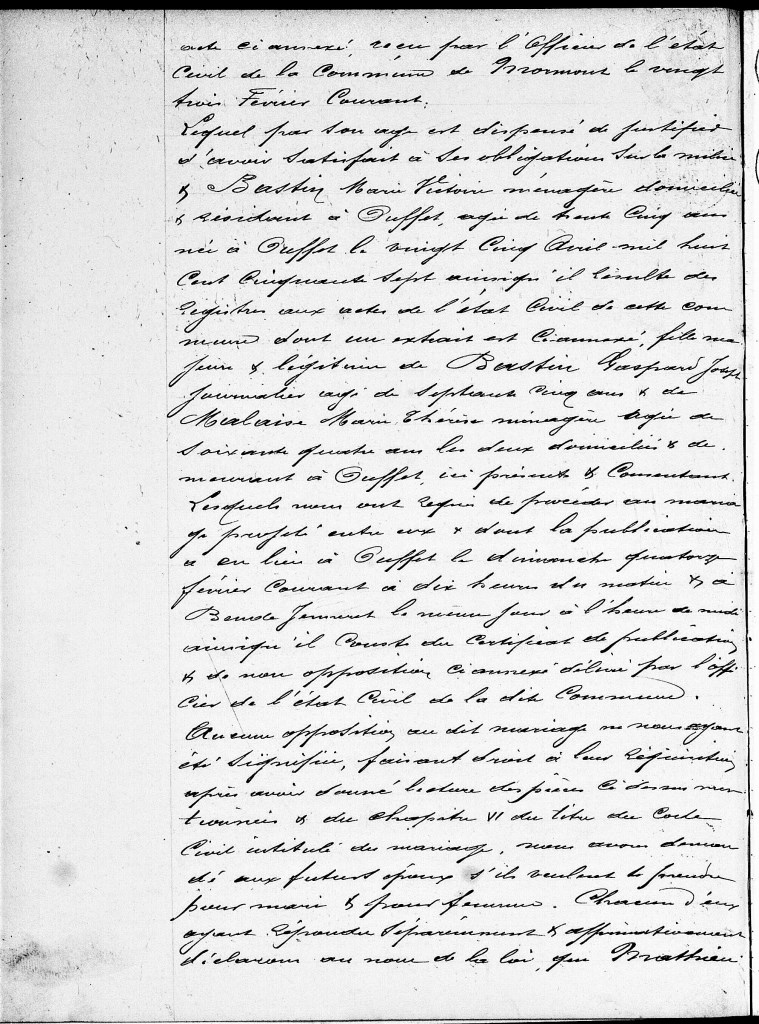 acte ci annexé recu par l'Officier de l'état
Civil de la Commune de Mormont le vingt
trois Février Courant.
Lequel par son age est dispensé de justifier
d'avoir satisfait à ses obligations sur la milice
& Bastin Marie Victoire ménagère domiciliée
& résidant à Ouffet, agée de trente cinq ans
née à Ouffet le vingt Cinq Avril mil huit
Cent Cinquante Sept ainsiqu'il résulte des
Registres aux actes de l'état Civil de cette com
mune dont un extrait est ci annexé, fille ma
jeure & légitime de Bastin Gaspard Joseph
Journalier agé de septante cinq ans & de
Malaise Marie Thérèse ménagère agée de
Soixante quatre ans les deux domiciliés & de
meurant à Ouffet, ici présents & Consentant.
Lesquels nous ont requis de procéder au maria
ge projeté entre eux & dont la publication
a eu lieu à Ouffet le dimanche quatorze
février Courant à dix heures du matin & à
Bende Jenneret le même jour à l'heure de midi
ainsiqu'il Conste du Certificat de publication
& de non opposition ci annexé délivré par l'offi
cier de l'état Civil de la dite Commune.
Aucune opposition au dit mariage ne nous ayant
été signifiée, faisant droit à leur réquisition
après avoir donné lecture des pièces ci dessus men
tionnées & du chapitre VI du titre du Code
Civil intitulé du mariage, nous avons deman
dé aux futurs époux s'ils veulent se prendre
pour mari & pour femme. Chacun d'eux
ayant répondu séparément & affirmativement
déclarons au nom de la loi, que Mathieu